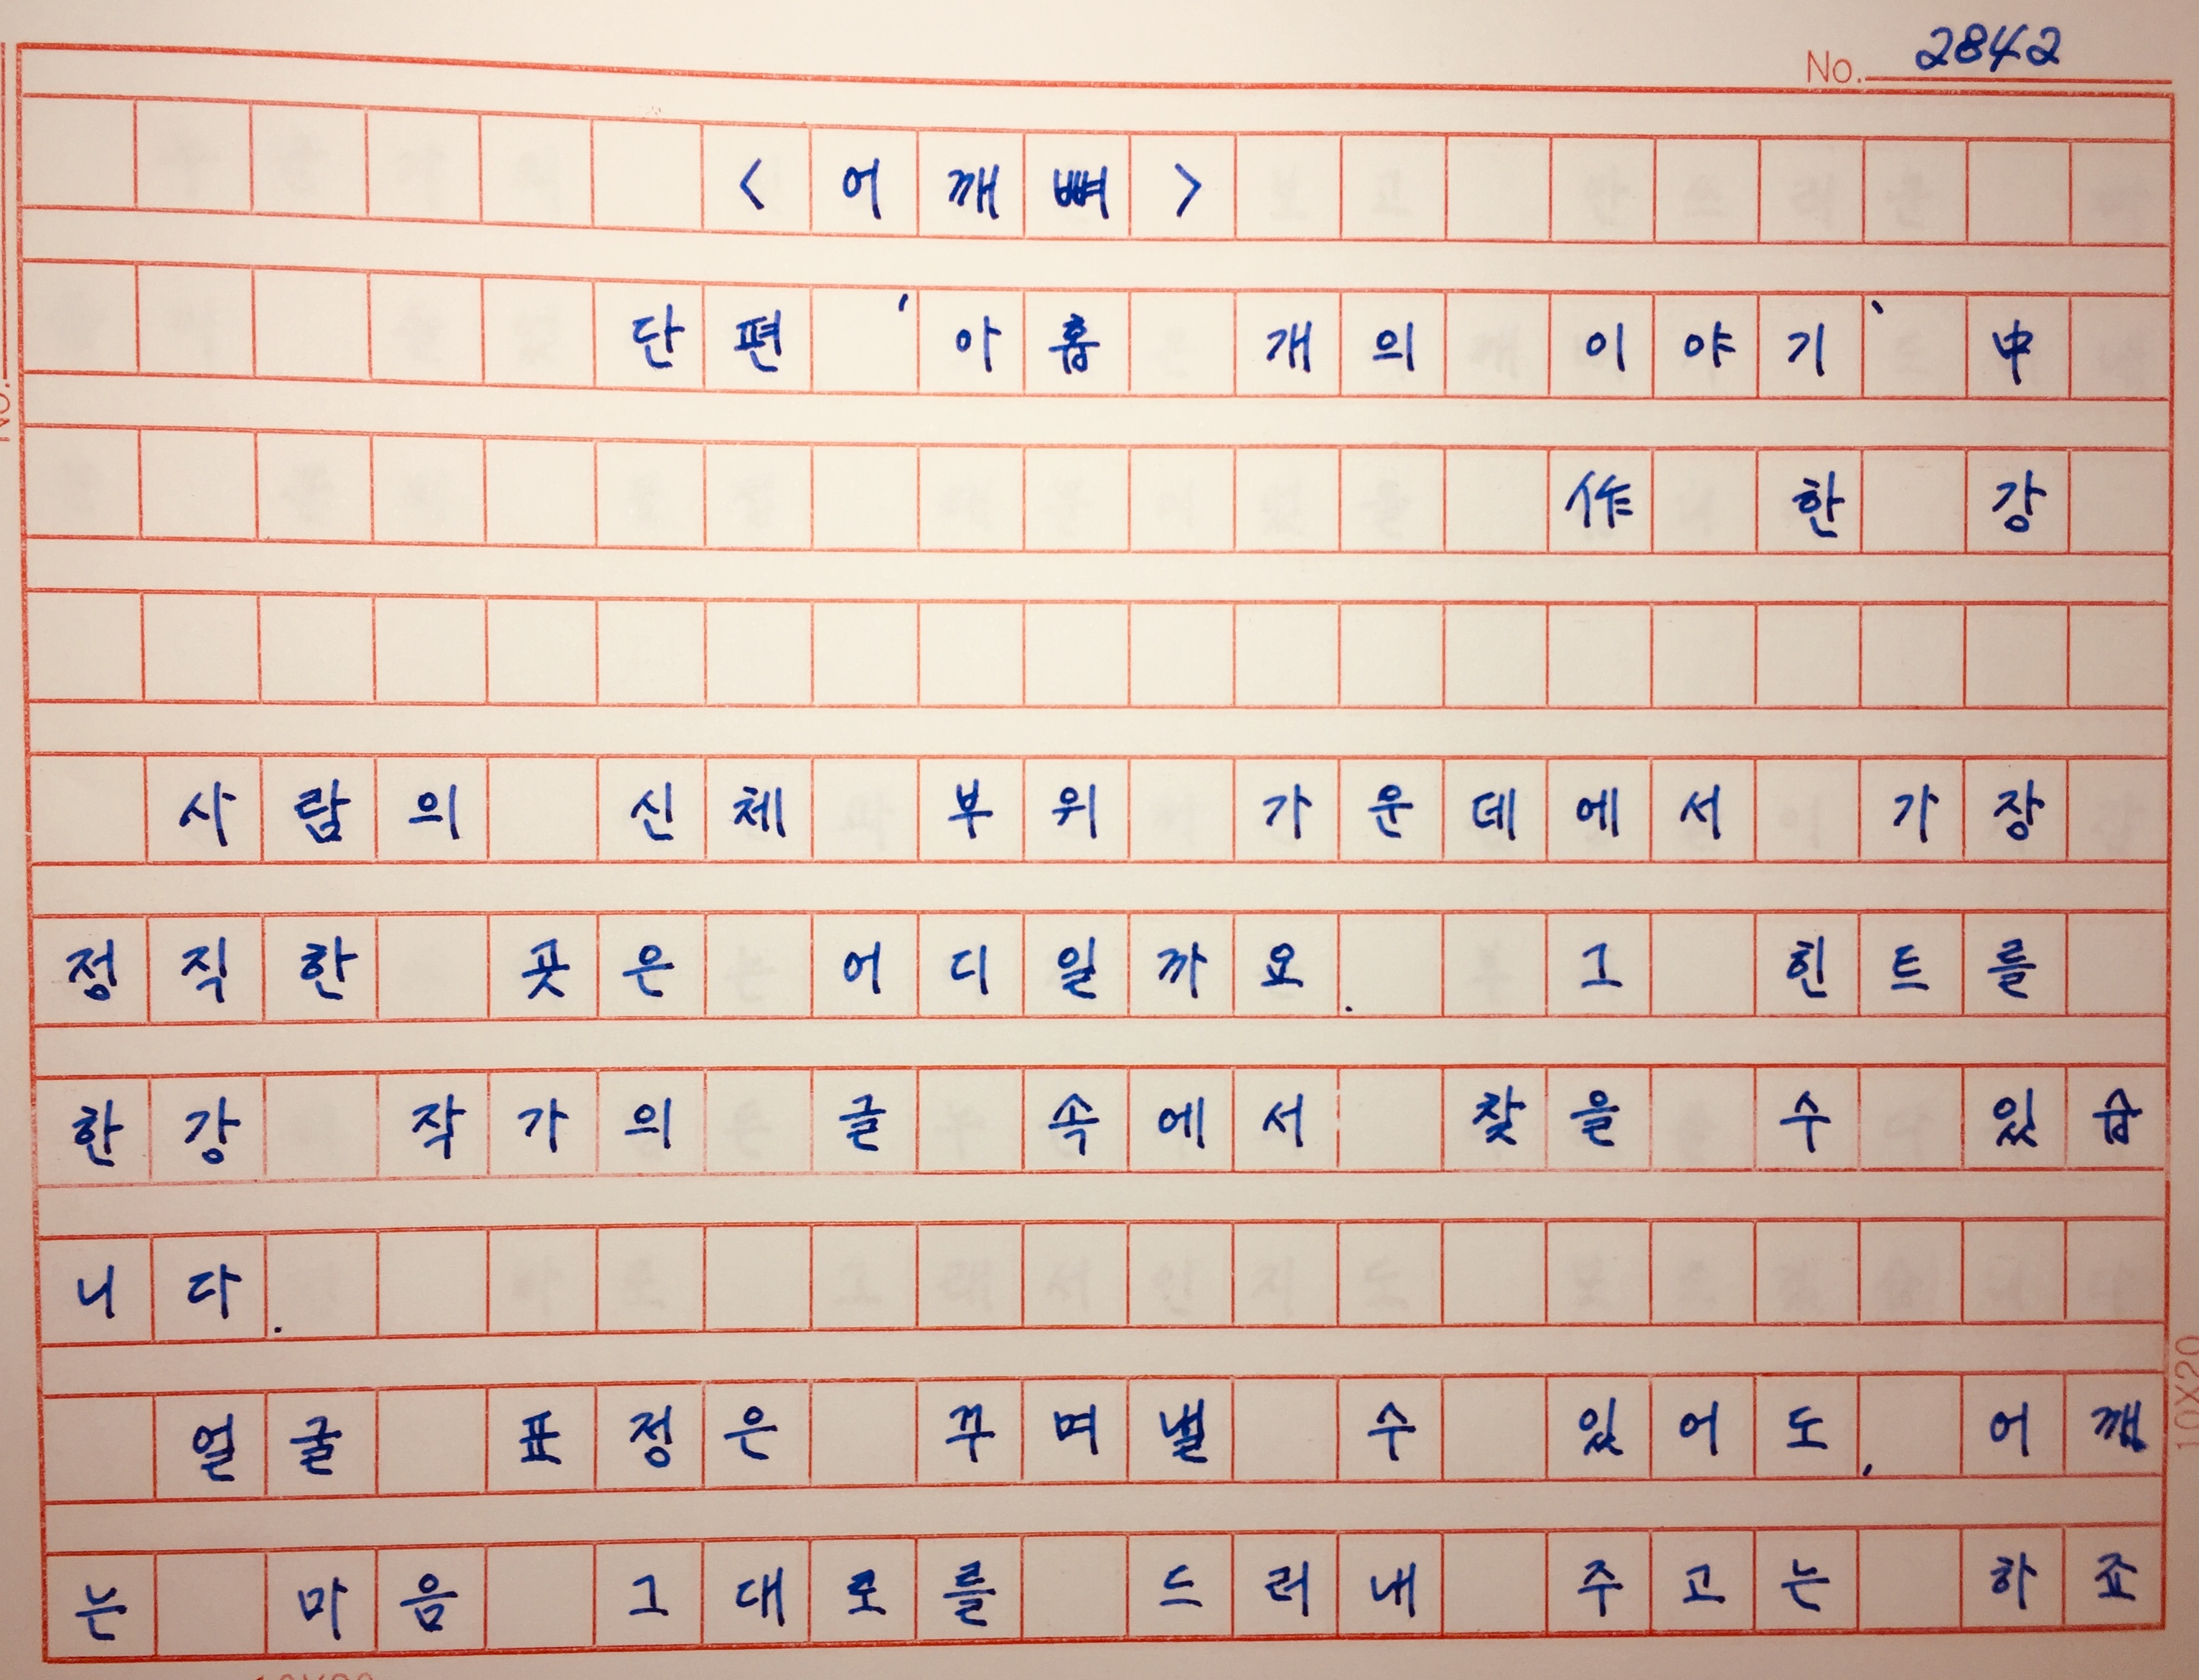 No. 2842
<어깨뼈>
단편 '아홉 개의 이야기' 中
作 한 강
사람의 신체 부위 가운데에서 가장
정직한 곳은 어디일까요. 그 힌트를
한강 작가의 글 속에서 찾을 수 있습
니다.
얼굴 표정은 꾸며낼 수 있어도, 어깨
는 마음 그대로를 드러내 주고는 하죠
10X20